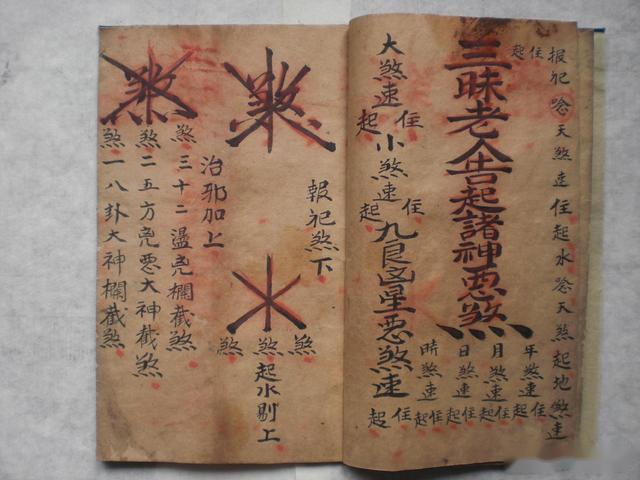 报犯唸天煞速住起水唸天煞起地煞速
住起
三昧老告起諸神惡煞
年煞速住起
月煞速住起
日煞速住起
時煞速住起
大煞速住起小煞速住起九良凶星惡煞速住起
報犯煞下
煞
煞煞煞
起水剔上
治邪加上
煞
煞三十二盪兇欄截煞
煞二五方兇惡大神截煞
煞一八卦大神欄截煞